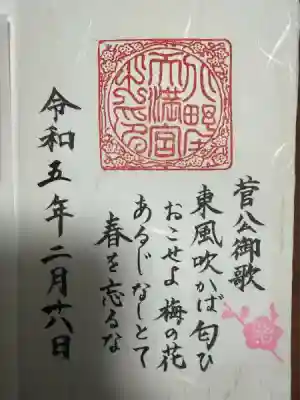 菅公御歌
東風吹かば匂ひ
おこせよ梅の花
あるじなしとて
春を忘るな
天満宮
令和五年二月廿八日